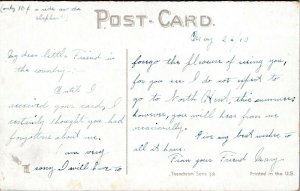 (only 10¢ a ride on the
elephant)
POST-CARD.
Aug 26 10
My dear little Friend in
the country:-
Until I
received your card, I
certainly thought you had
forgotten about me.
I am very
sorry, I will have to
forego the pleasure of seeing you,
for you see I do not expect to
go to North this summer,
however, you will hear from me
occasionally.
Give my best wishes to
all at home.
From your Friend
Printed in the U.S.